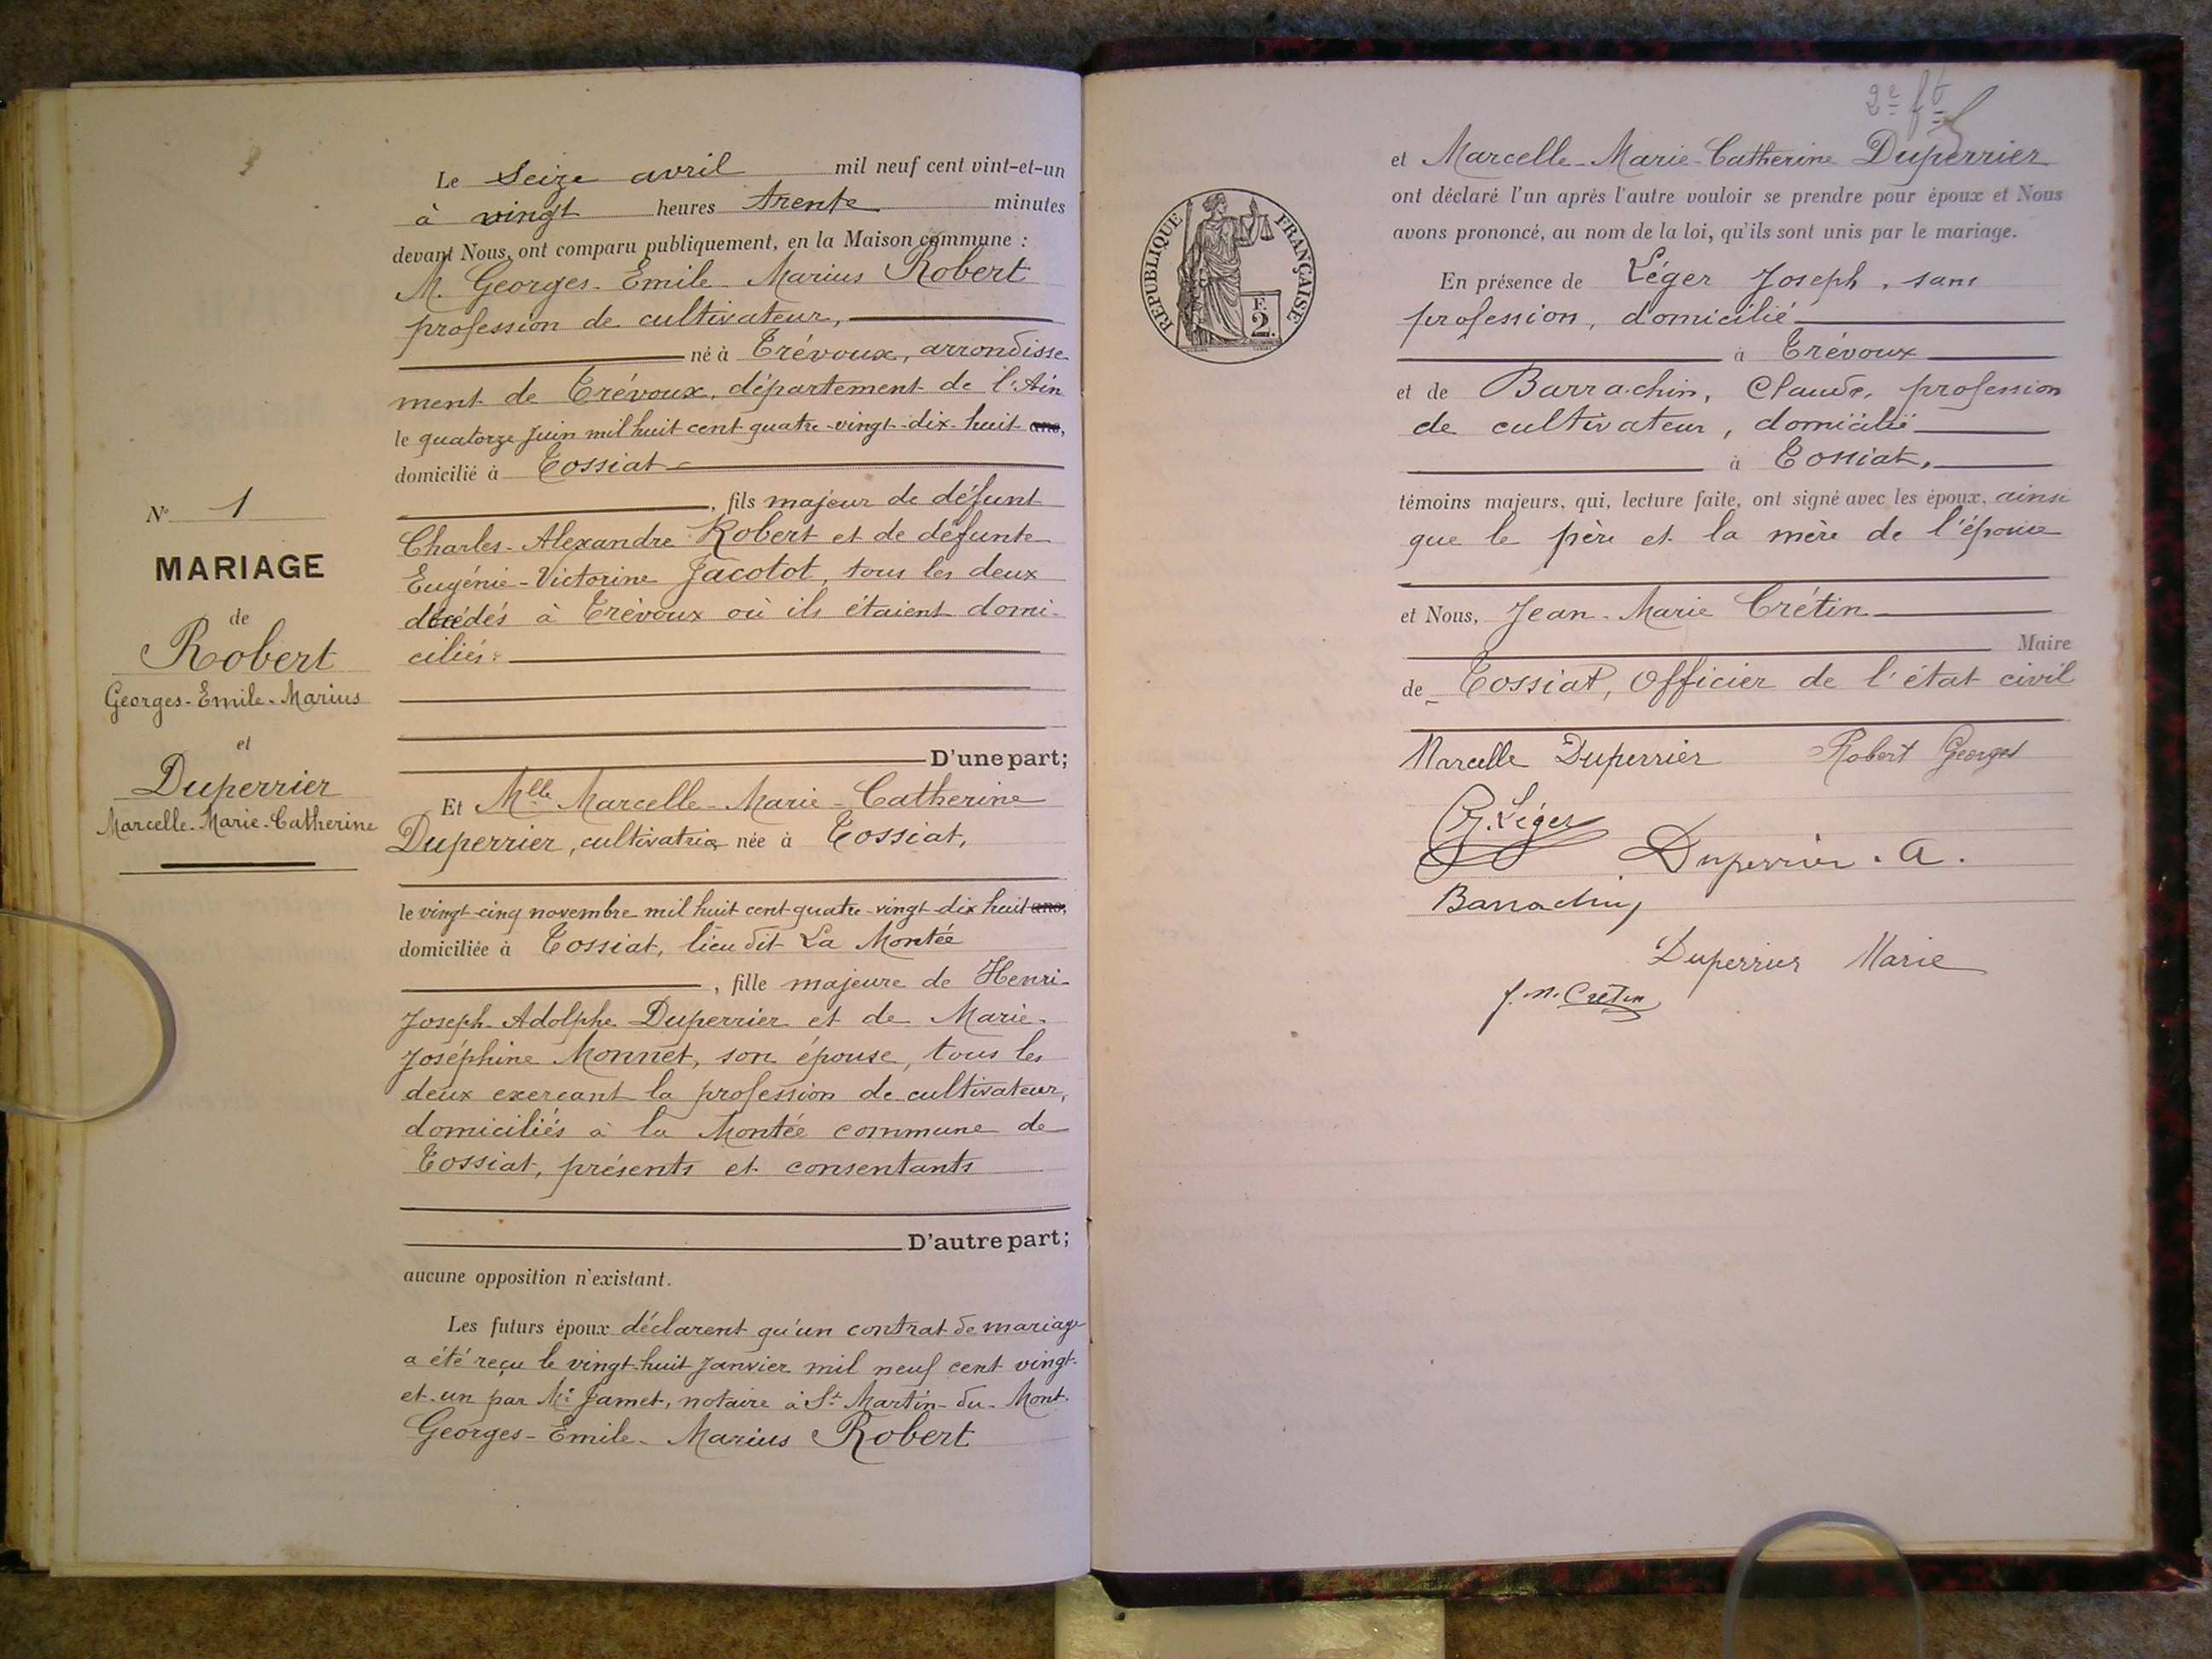 Le Seize avril mil neuf cent vint-et-un
à vingt heures trente minutes
devant Nous, ont comparu publiquement, en la Maison commune :
M. Georges-Emile-Marius Robert
profession de cultivateur,
né à Trévoux, arrondisse
ment de Trévoux, département de l'Ain
le quatorze Juin mil huit cent quatre-vingt-dix-huit ans,
domicilié à Tossiat
, fils majeur de défunt
Charles-Alexandre Robert et de défunte
Eugénie-Victorine Jacotot, tous les deux
décédés à Trévoux où ils étaient domi-
ciliés.
D'une part;
Et Mlle Marcelle-Marie-Catherine
Duperrier, cultivatrice née à Tossiat,
le vingt-cinq novembre mil huit cent quatre-vingt-dix huit ans,
domiciliée à Tossiat, lieu dit La Montée
, fille majeure de Henri-
Joseph-Adolphe Duperrier et de Marie-
Joséphine Monnet, son épouse, tous les
deux exerçant la profession de cultivateur,
domiciliés à la Montée commune de
Tossiat, présents et consentants
D'autre part;
aucune opposition n'existant.
Les futurs époux déclarent qu'un contrat de mariage
a été reçu le vingt-huit Janvier mil neuf cent vingt-
et-un par Me Jamet, notaire à St Martin-du-Mont.
Georges-Emile-Marius Robert
N° 1
MARIAGE
de
Robert
Georges-Emile-Marius
et
Duperrier
Marcelle-Marie-Catherine
2e ft
et Marcelle-Marie-Catherine Duperrier
ont déclaré l'un après l'autre vouloir se prendre pour époux et Nous
avons prononcé, au nom de la loi, qu'ils sont unis par le mariage.
En présence de Léger Joseph, sans
profession, domicilié
à Trévoux
et de Barrachin, Claude, profession
de cultivateur, domicilié
à Tossiat,
témoins majeurs, qui, lecture faite, ont signé avec les époux, ainsi
que le père et la mère de l'épouse
et Nous, Jean-Marie Crétin
Maire
de Tossiat, Officier de l'état civil
Marcelle Duperrier Robert Georges
J. Léger
Duperrier. A.
Barrachin
Duperrier Marie
J. M. Crétin
RÉPUBLIQUE FRANÇAISE
F.
2.